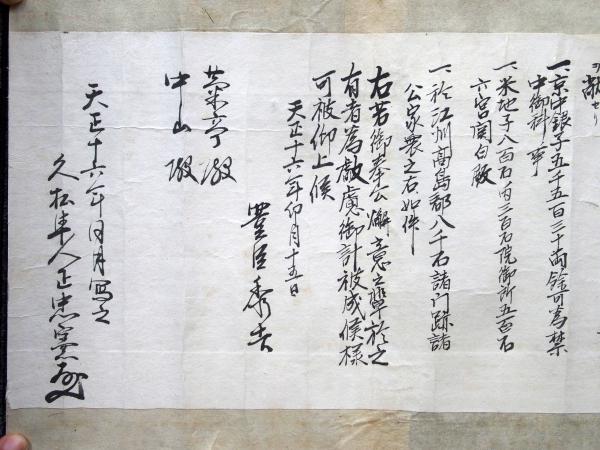 一、京中銀子五千五百三十両余可為禁
中御料事
一、米地子八百石内三百石院御所五百石
六宮関白殿
一、於江州高島郡八千石諸門跡諸
公家衆之右如件
右若御奉公懈怠之輩於之
有者為叡慮御計被成候様
可被仰上候
天正十六年卯月十五日
豊臣秀吉
菊亭殿
中山殿
天正十六年同月写之
久松隼人正忠